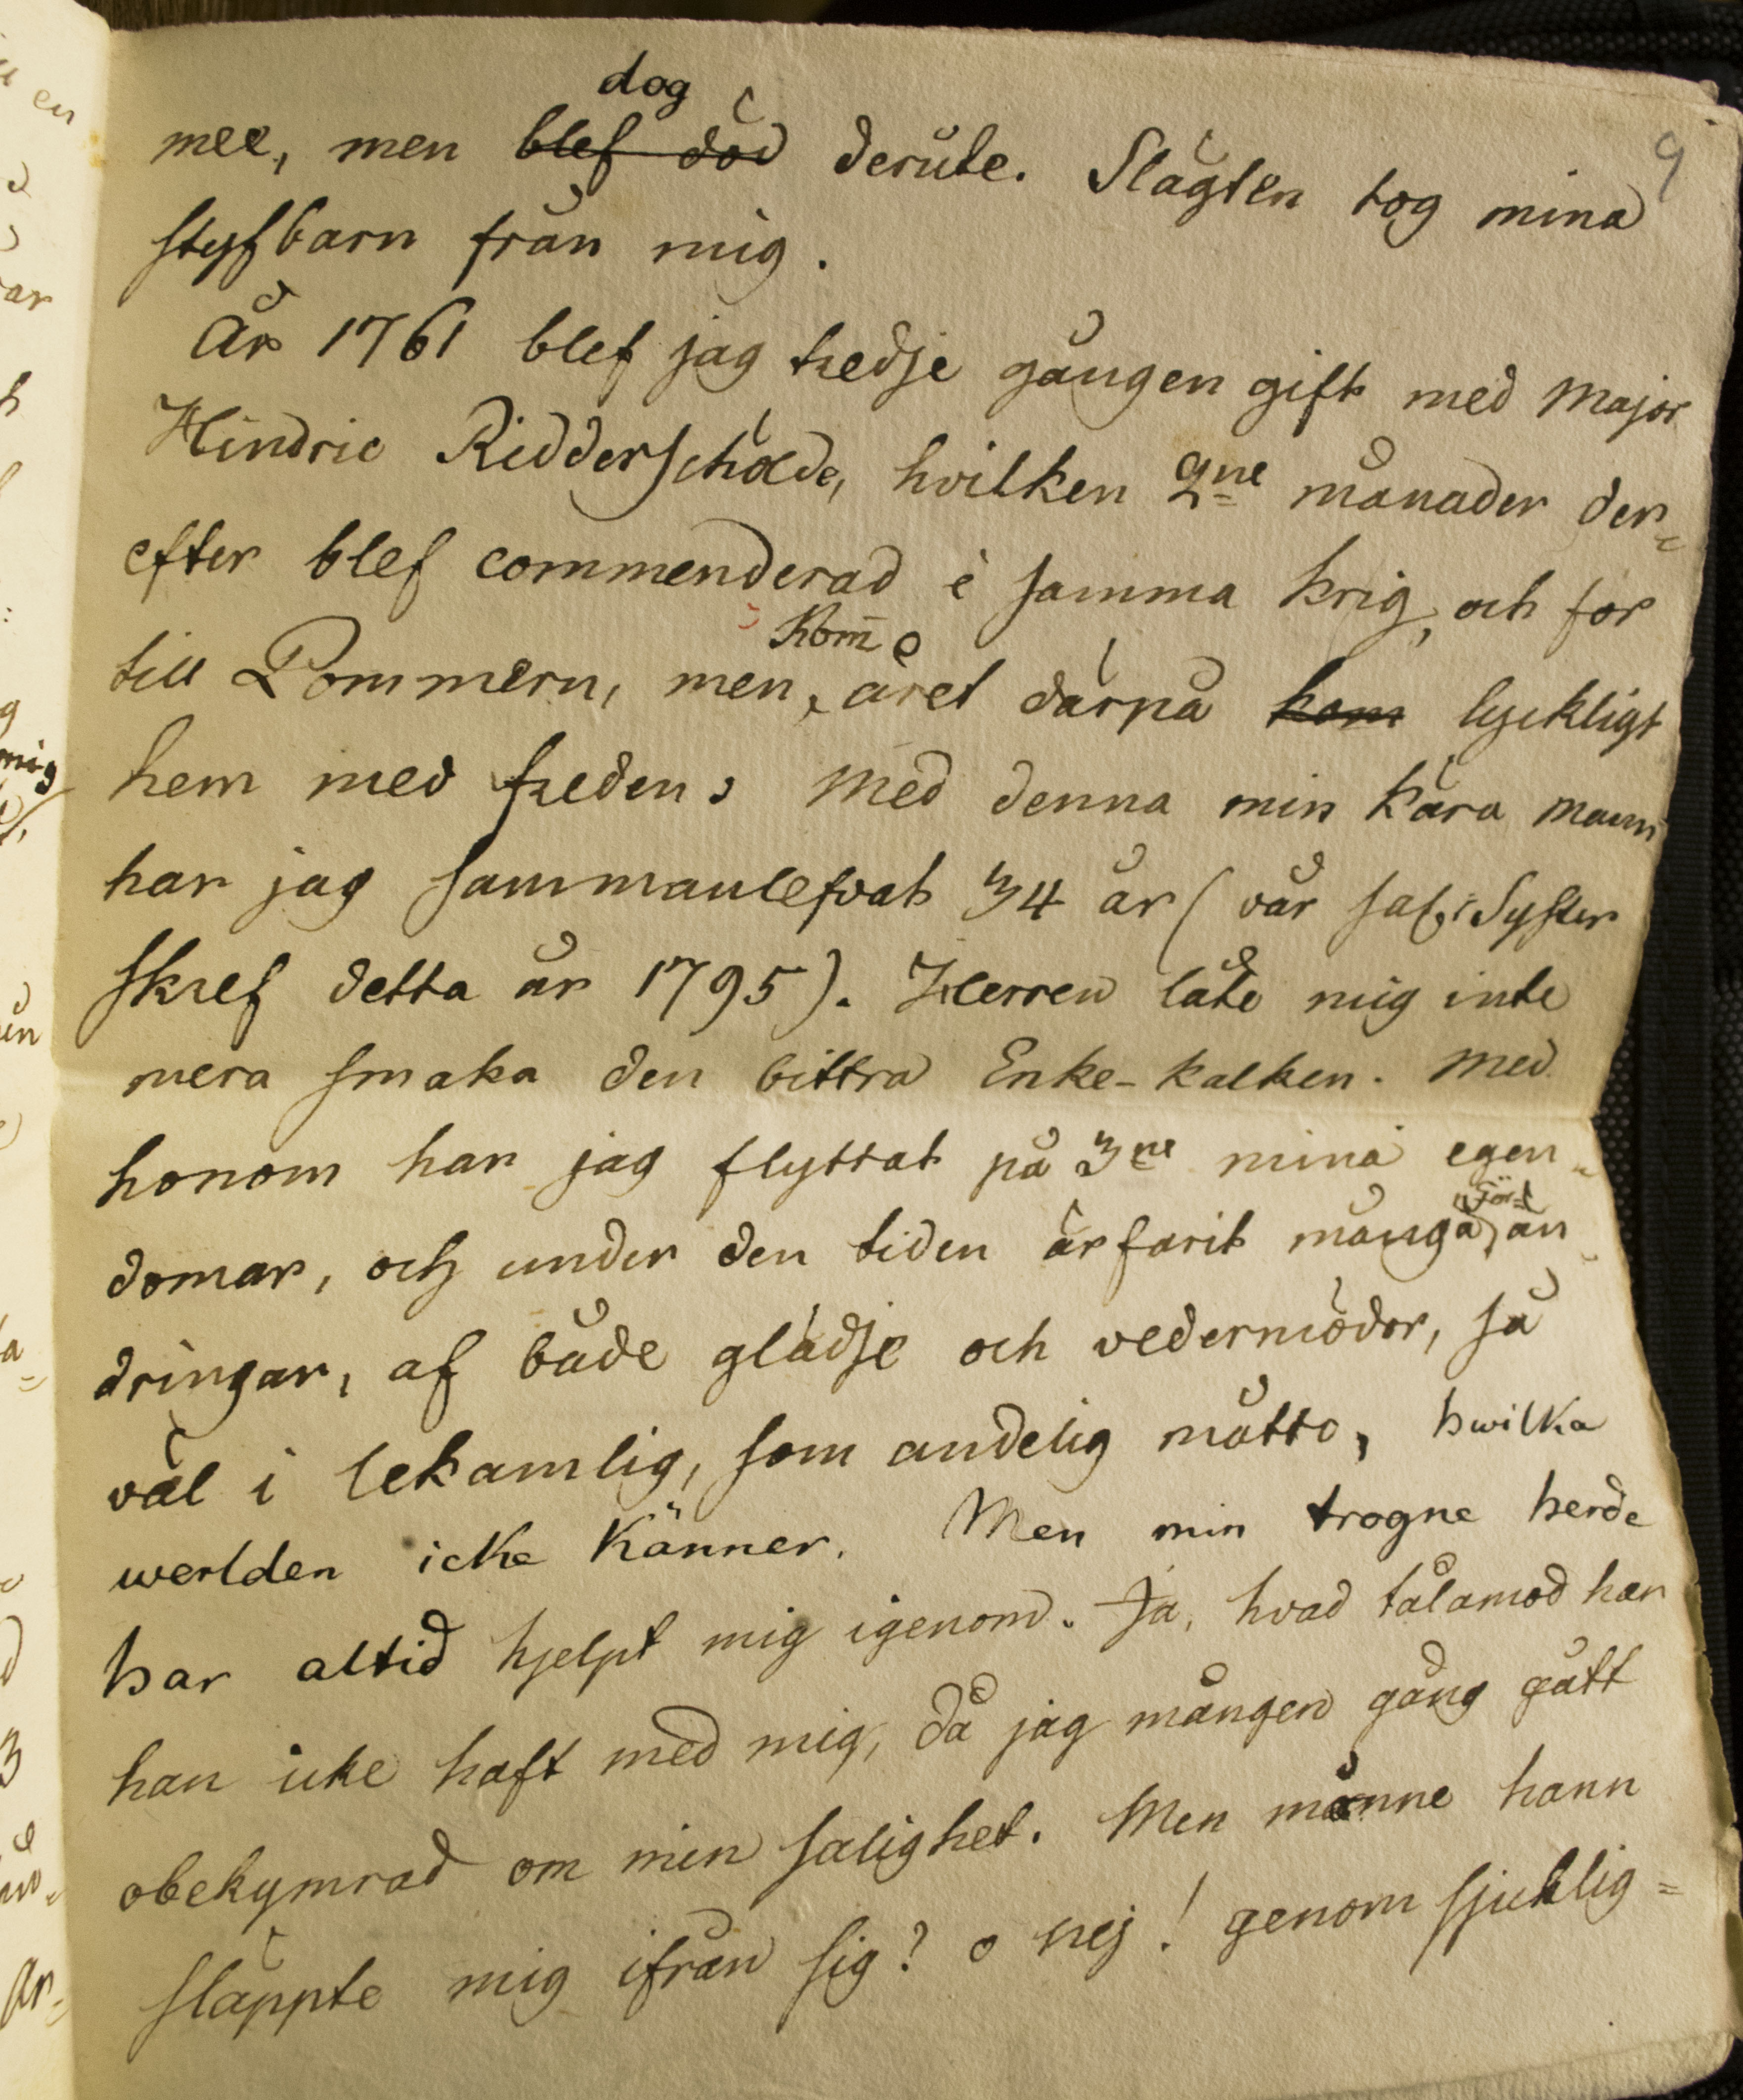 9
dog
mee, men blef död derute. Slägten tog mina
styfbarn från mig.
År 1761 blef jag tredje gången gift med Major
Hindric Ridderschöld, hvilken 2ne månader der=
efter blef commenderad i samma krig, och for
kom
till Pommern, men, året därpå kom lyckligt
hem med freden; Med denna min kära mann
har jag sammanlefvat 34 år (vår sal. Syster
skref detta år 1795). Herren låte mig inte
mera smaka den bittra Enke-kalken. Med
honom har jag flyttat på 3ne mina egen=
domar, och under den tiden ärfarit många för=än=
dringar, af både glädje och vedermödor, så
väl i lekamlig, som andelig måtto, hwilka
werlden icke känner. Men min trogne herde
har altid hjelpt mig igenom. Ja, hvad tålamod har
han icke haft med mig, då jag mången gång gått
obekymrad om min salighet. Men månne hann
släppte mig ifrån sig? o nej! genom sjuklig=